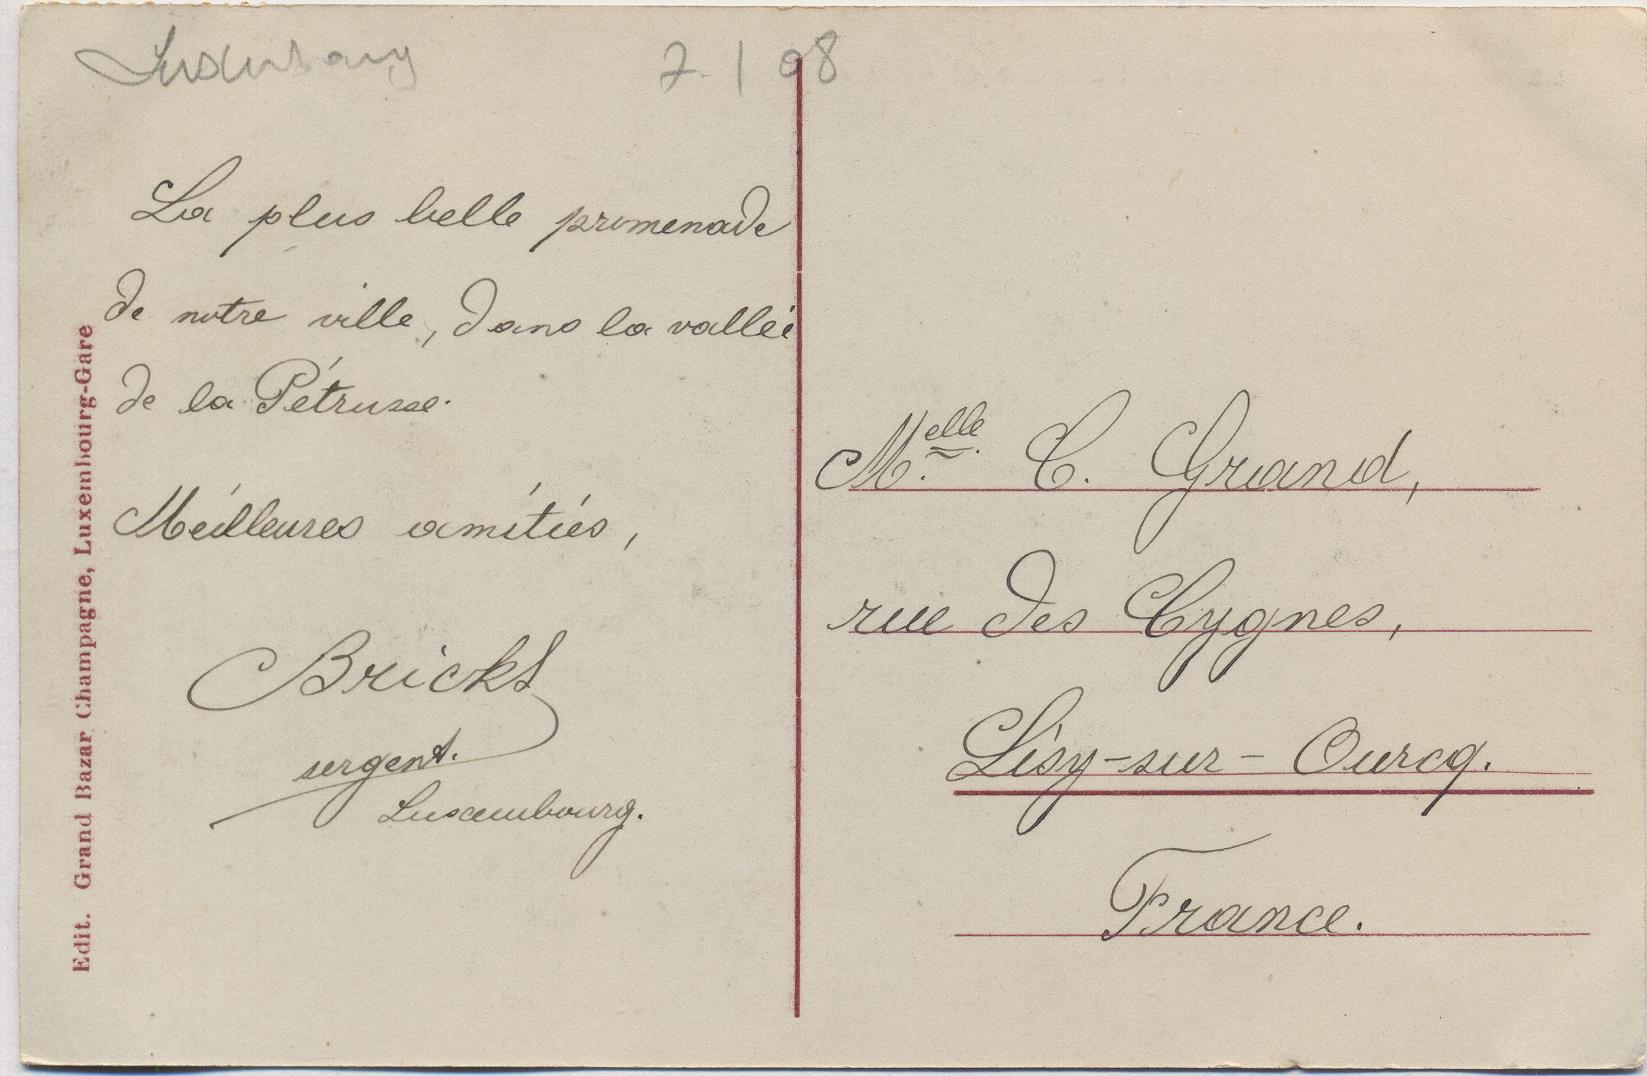 Luxembourg 7. 1 08
La plus belle promenade
de notre ville, dans la vallée
de la Pétrusse.
Meilleures amitiés,
Bricks
sergent.
Luxembourg.
Edit. Grand Bazar Champagne, Luxembourg-Gare
M.elle C. Grand,
rue des Cygnes,
Lisy-sur-Ourcq.
France.